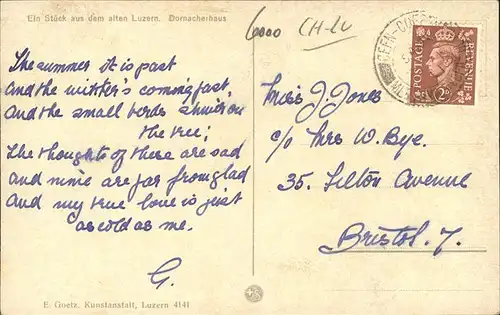 Ein Stück aus dem alten Luzern. Dornacherhaus
6000 CH-LU
The summer it is past
And the winter's coming fast,
And the small birds shiver on
the tree;
The thoughts of these are sad
And mine are far from glad
And my true love is just
as cold as me.
G.
POSTAGE REVENUE
2D
Miss J Jones
c/o Mrs W. Bye.
35. Filton Avenue
Bristol. 7.
E. Goetz, Kunstanstalt, Luzern 4141